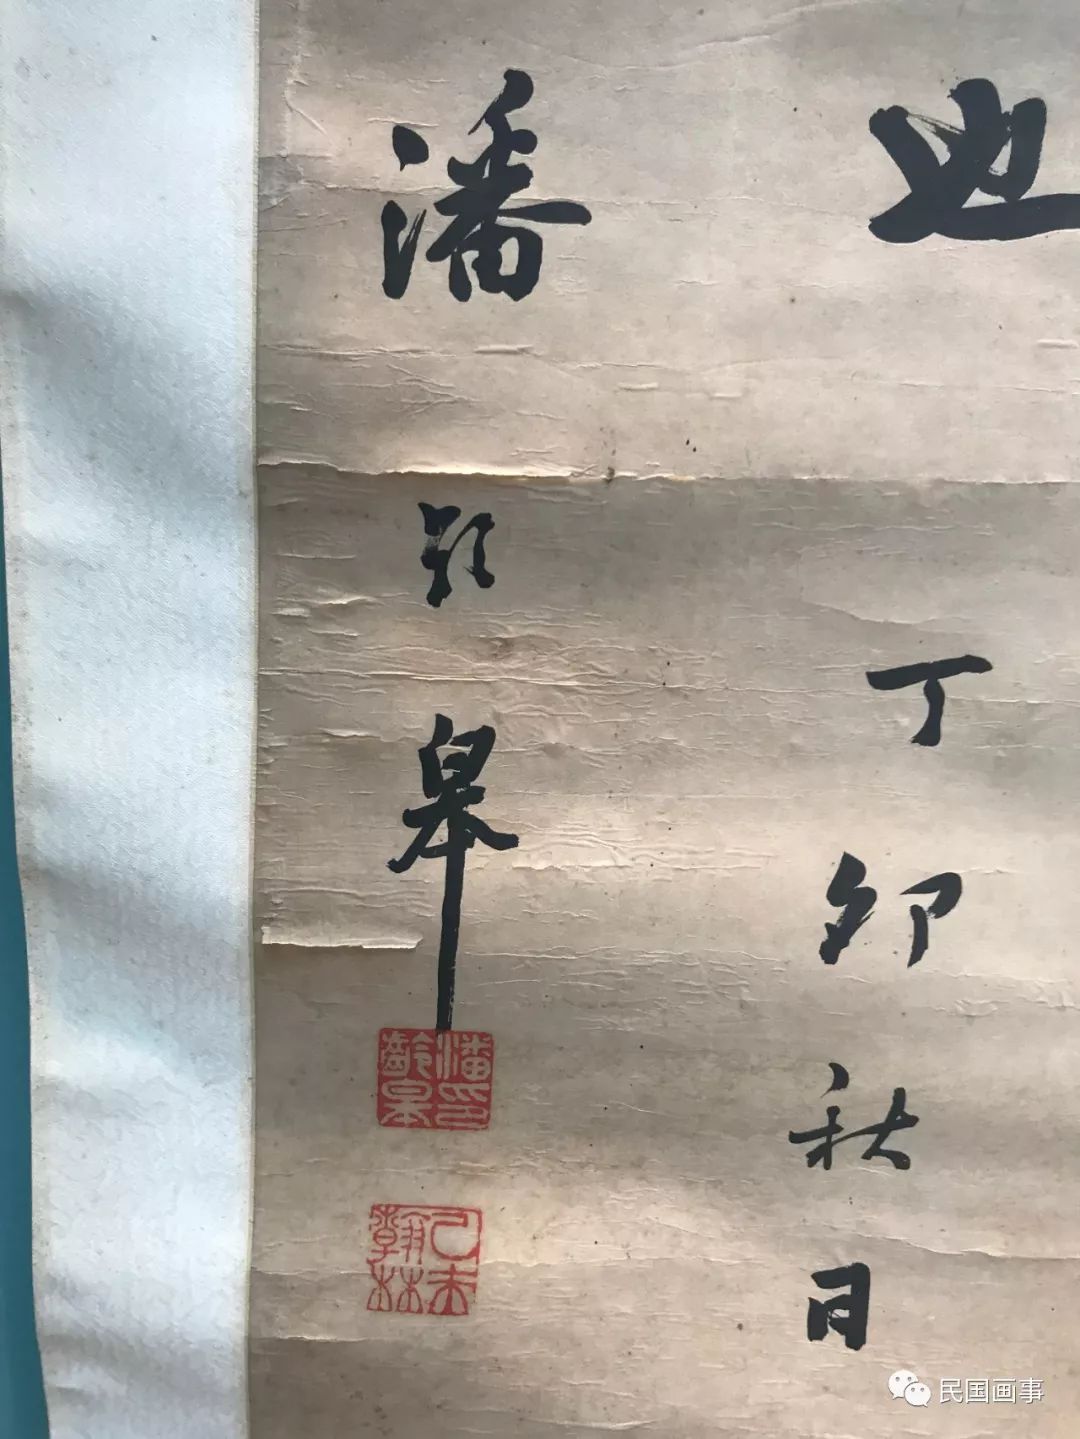 也
丁卯秋日
潘龄皋
潘印龄皋
己未翰林
民国画事